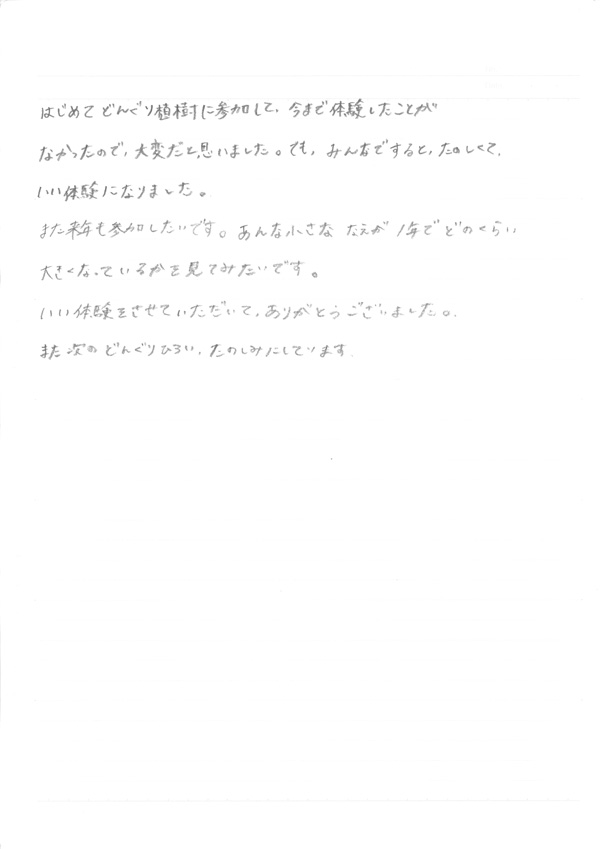 はじめてどんぐり植樹に参加して、今まで体験したことが
なかったので、大変だと思いました。でも、みんなですると、たのしくて、
いい体験になりました。
また来年も参加したいです。あんな小さな なえが 1年で どのくらい
大きくなっているかを見てみたいです。
いい体験をさせていただいて、ありがとうございました。
また次のどんぐりひろい、たのしみにしています.